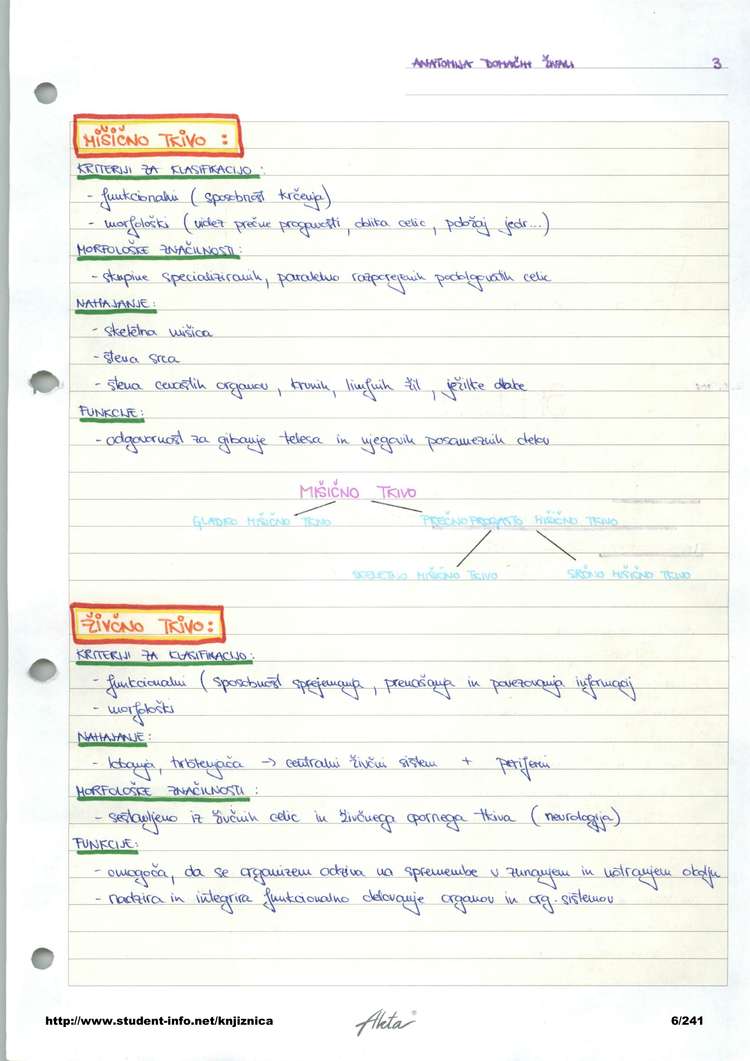 ANATOMIJA DOMAČIH ŽIVALI 3
MIŠIČNO TKIVO :
KRITERIJI ZA KLASIFIKACIJO :
- funkcionalni ( sposobnost krčenja)
- morfološki ( videz prečne progavosti , oblika celic , položaj jedr...)
MORFOLOŠKE ZNAČILNOSTI :
- skupine specializiranih, paralelno razporejenih podolgovatih celic
NAHAJANJE :
- skeletna mišica
- stena srca
- stena cevastih organov , krvnih, limfnih žil , ježilke dlake
FUNKCIJE :
- odgovornost za gibanje telesa in njegovih posameznih delov
MIŠIČNO TKIVO
GLADKO MIŠIČNO TKIVO PREČNOPROGASTO MIŠIČNO TKIVO
SKELETNO MIŠIČNO TKIVO SRČNO MIŠIČNO TKIVO
ŽIVČNO TKIVO :
KRITERIJI ZA KLASIFIKACIJO :
- funkcionalni ( sposobnost sprejemanja , prenašanja in povezovanja informacij
- morfološki
NAHAJANJE :
- lobanja, hrbtenjača -> centralni živčni sistem + periferni
MORFOLOŠKE ZNAČILNOSTI :
- sestavljeno iz živčnih celic in živčnega opornega tkiva ( nevrologija)
FUNKCIJE :
- omogoča, da se organizem odziva na spremembe v zunanjem in notranjem okolju
- nadzira in integrira funkcionalno delovanje organov in org. sistemov
http://www.student-info.net/knjiznica Akta 6/241